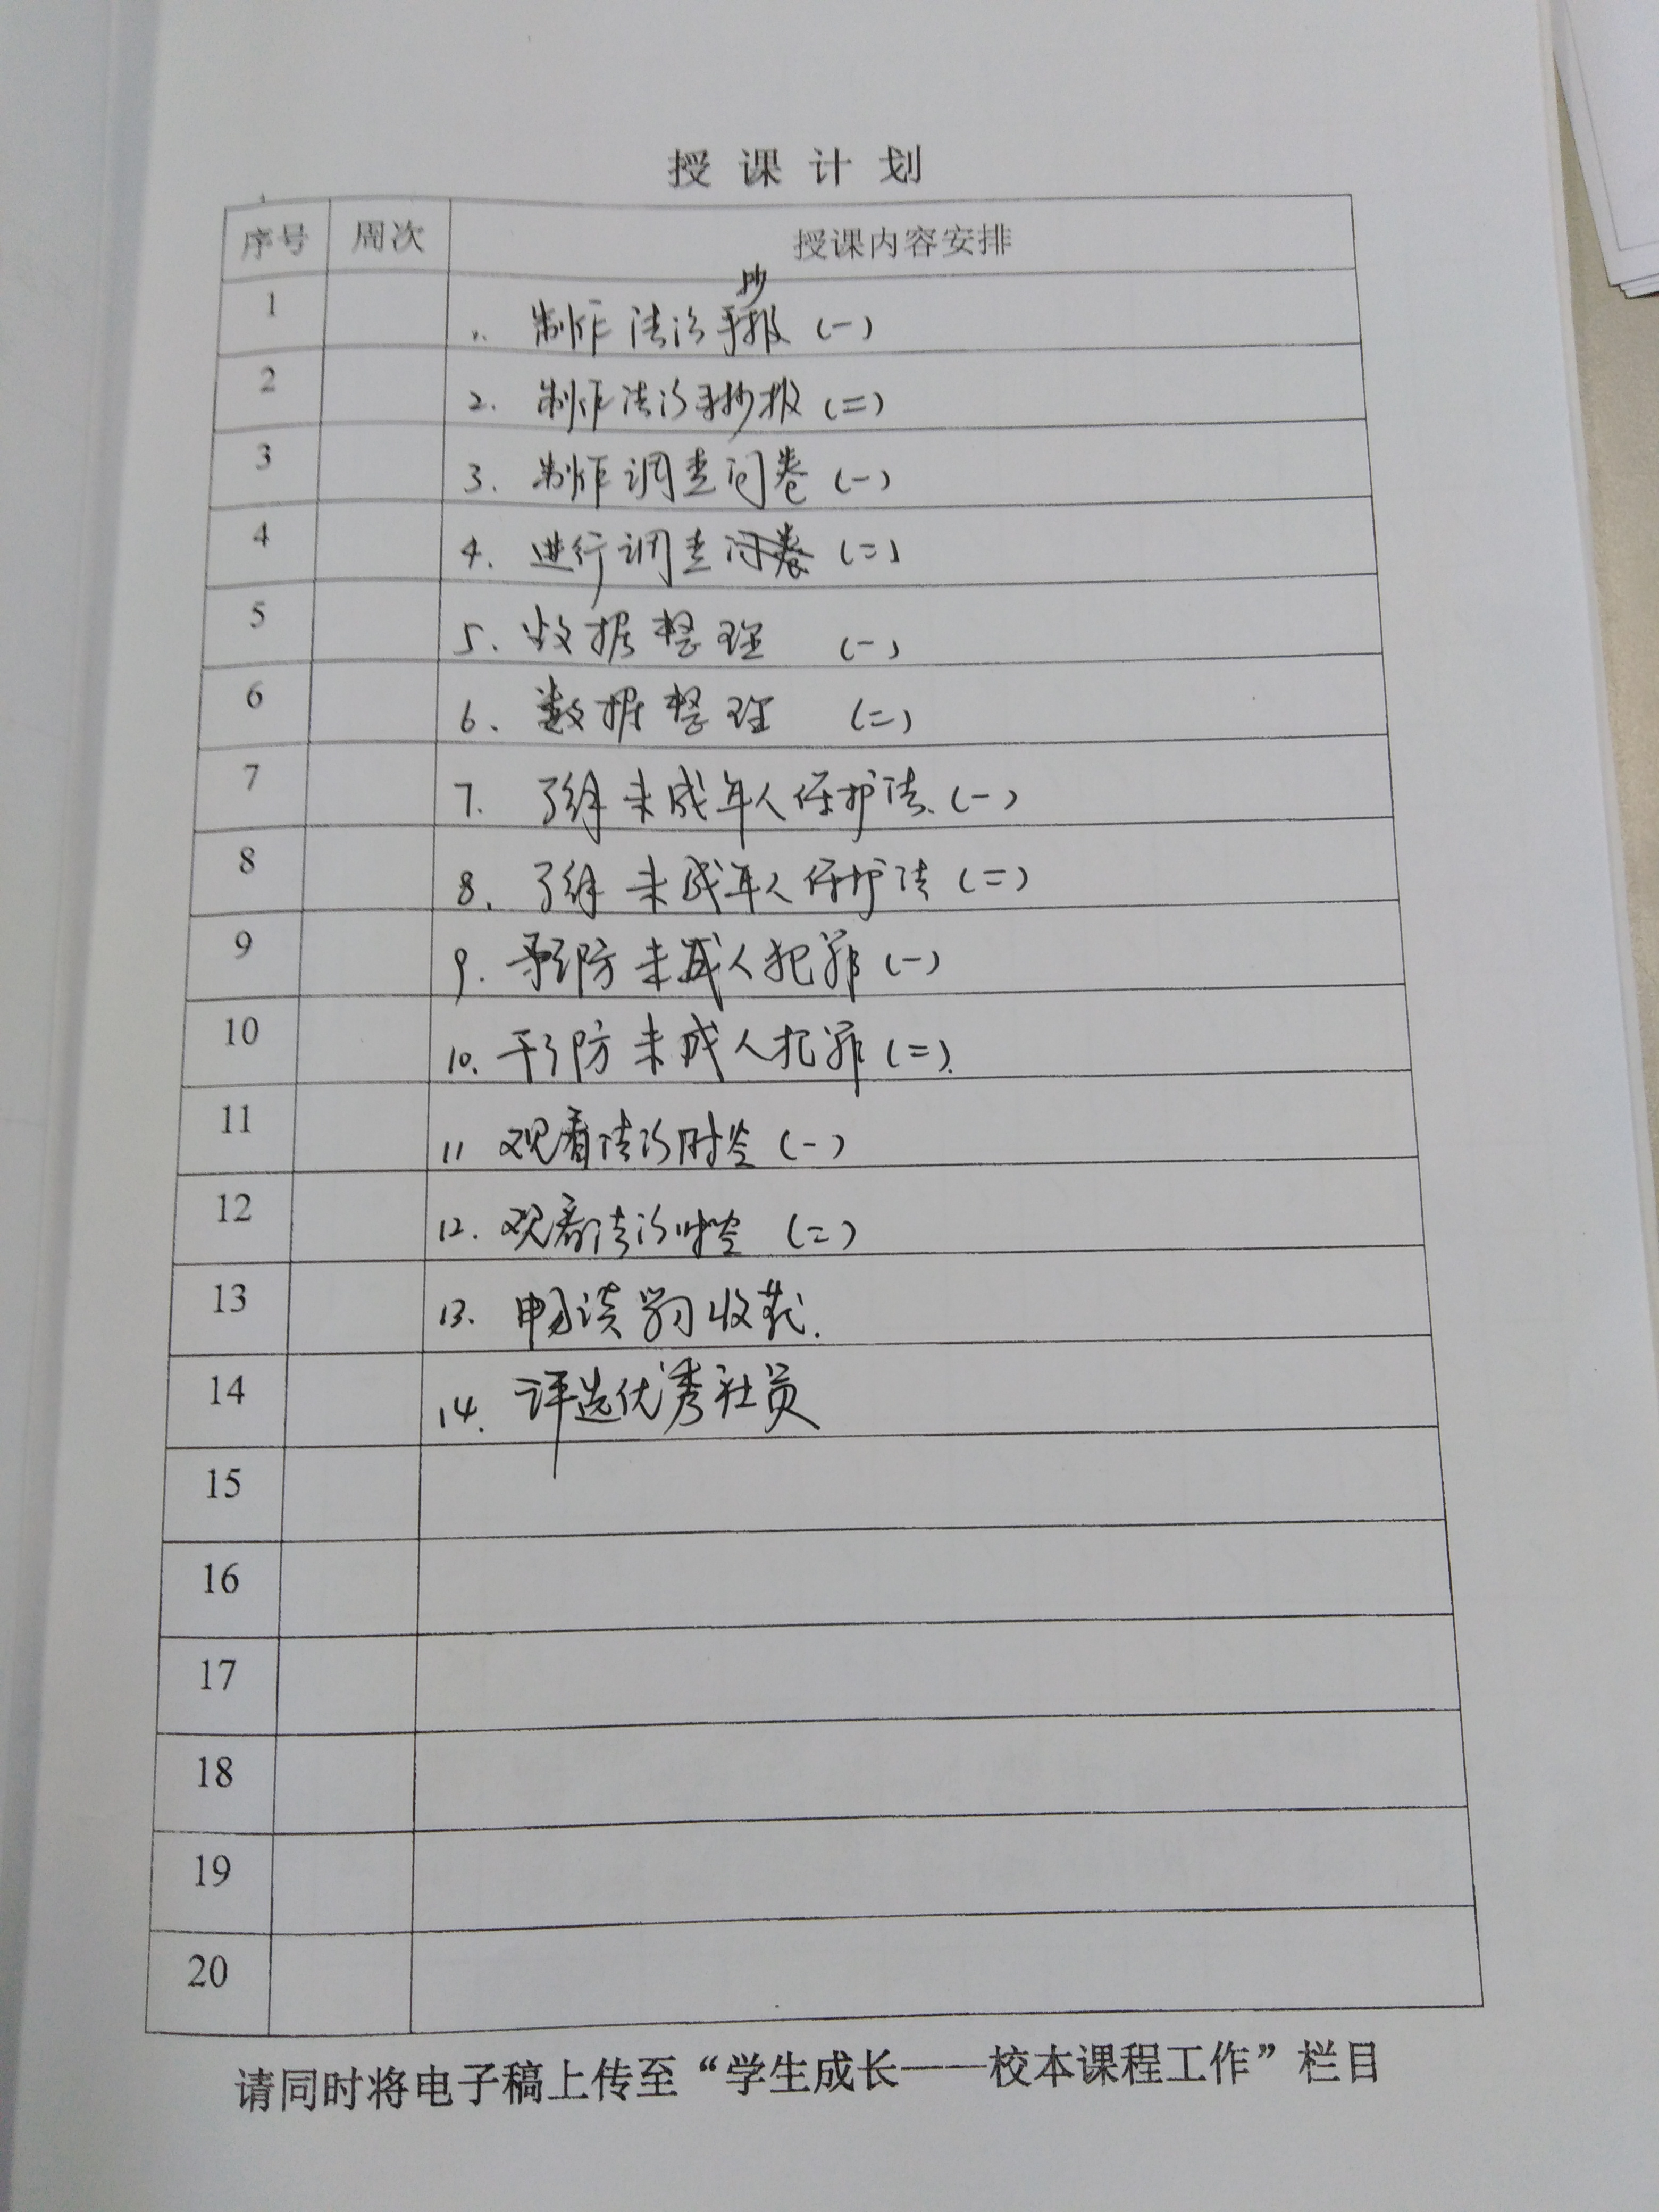 授课计划
序号 周次 授课内容安排
1 1. 制作法治手抄报（一）
2 2. 制作法治手抄报（二）
3 3. 制作调查问卷（一）
4 4. 进行调查问卷（二）
5 5. 数据整理 （一）
6 6. 数据整理 （二）
7 7. 了解未成年人保护法（一）
8 8. 了解未成年人保护法（二）
9 9. 预防未成人犯罪（一）
10 10. 预防未成人犯罪（二）.
11 11 观看法治时空（一）
12 12. 观看法治时空（二）
13 13. 畅谈学习收获.
14 14. 评选优秀社员
15
16
17
18
19
20
请同时将电子稿上传至“学生成长——校本课程工作”栏目